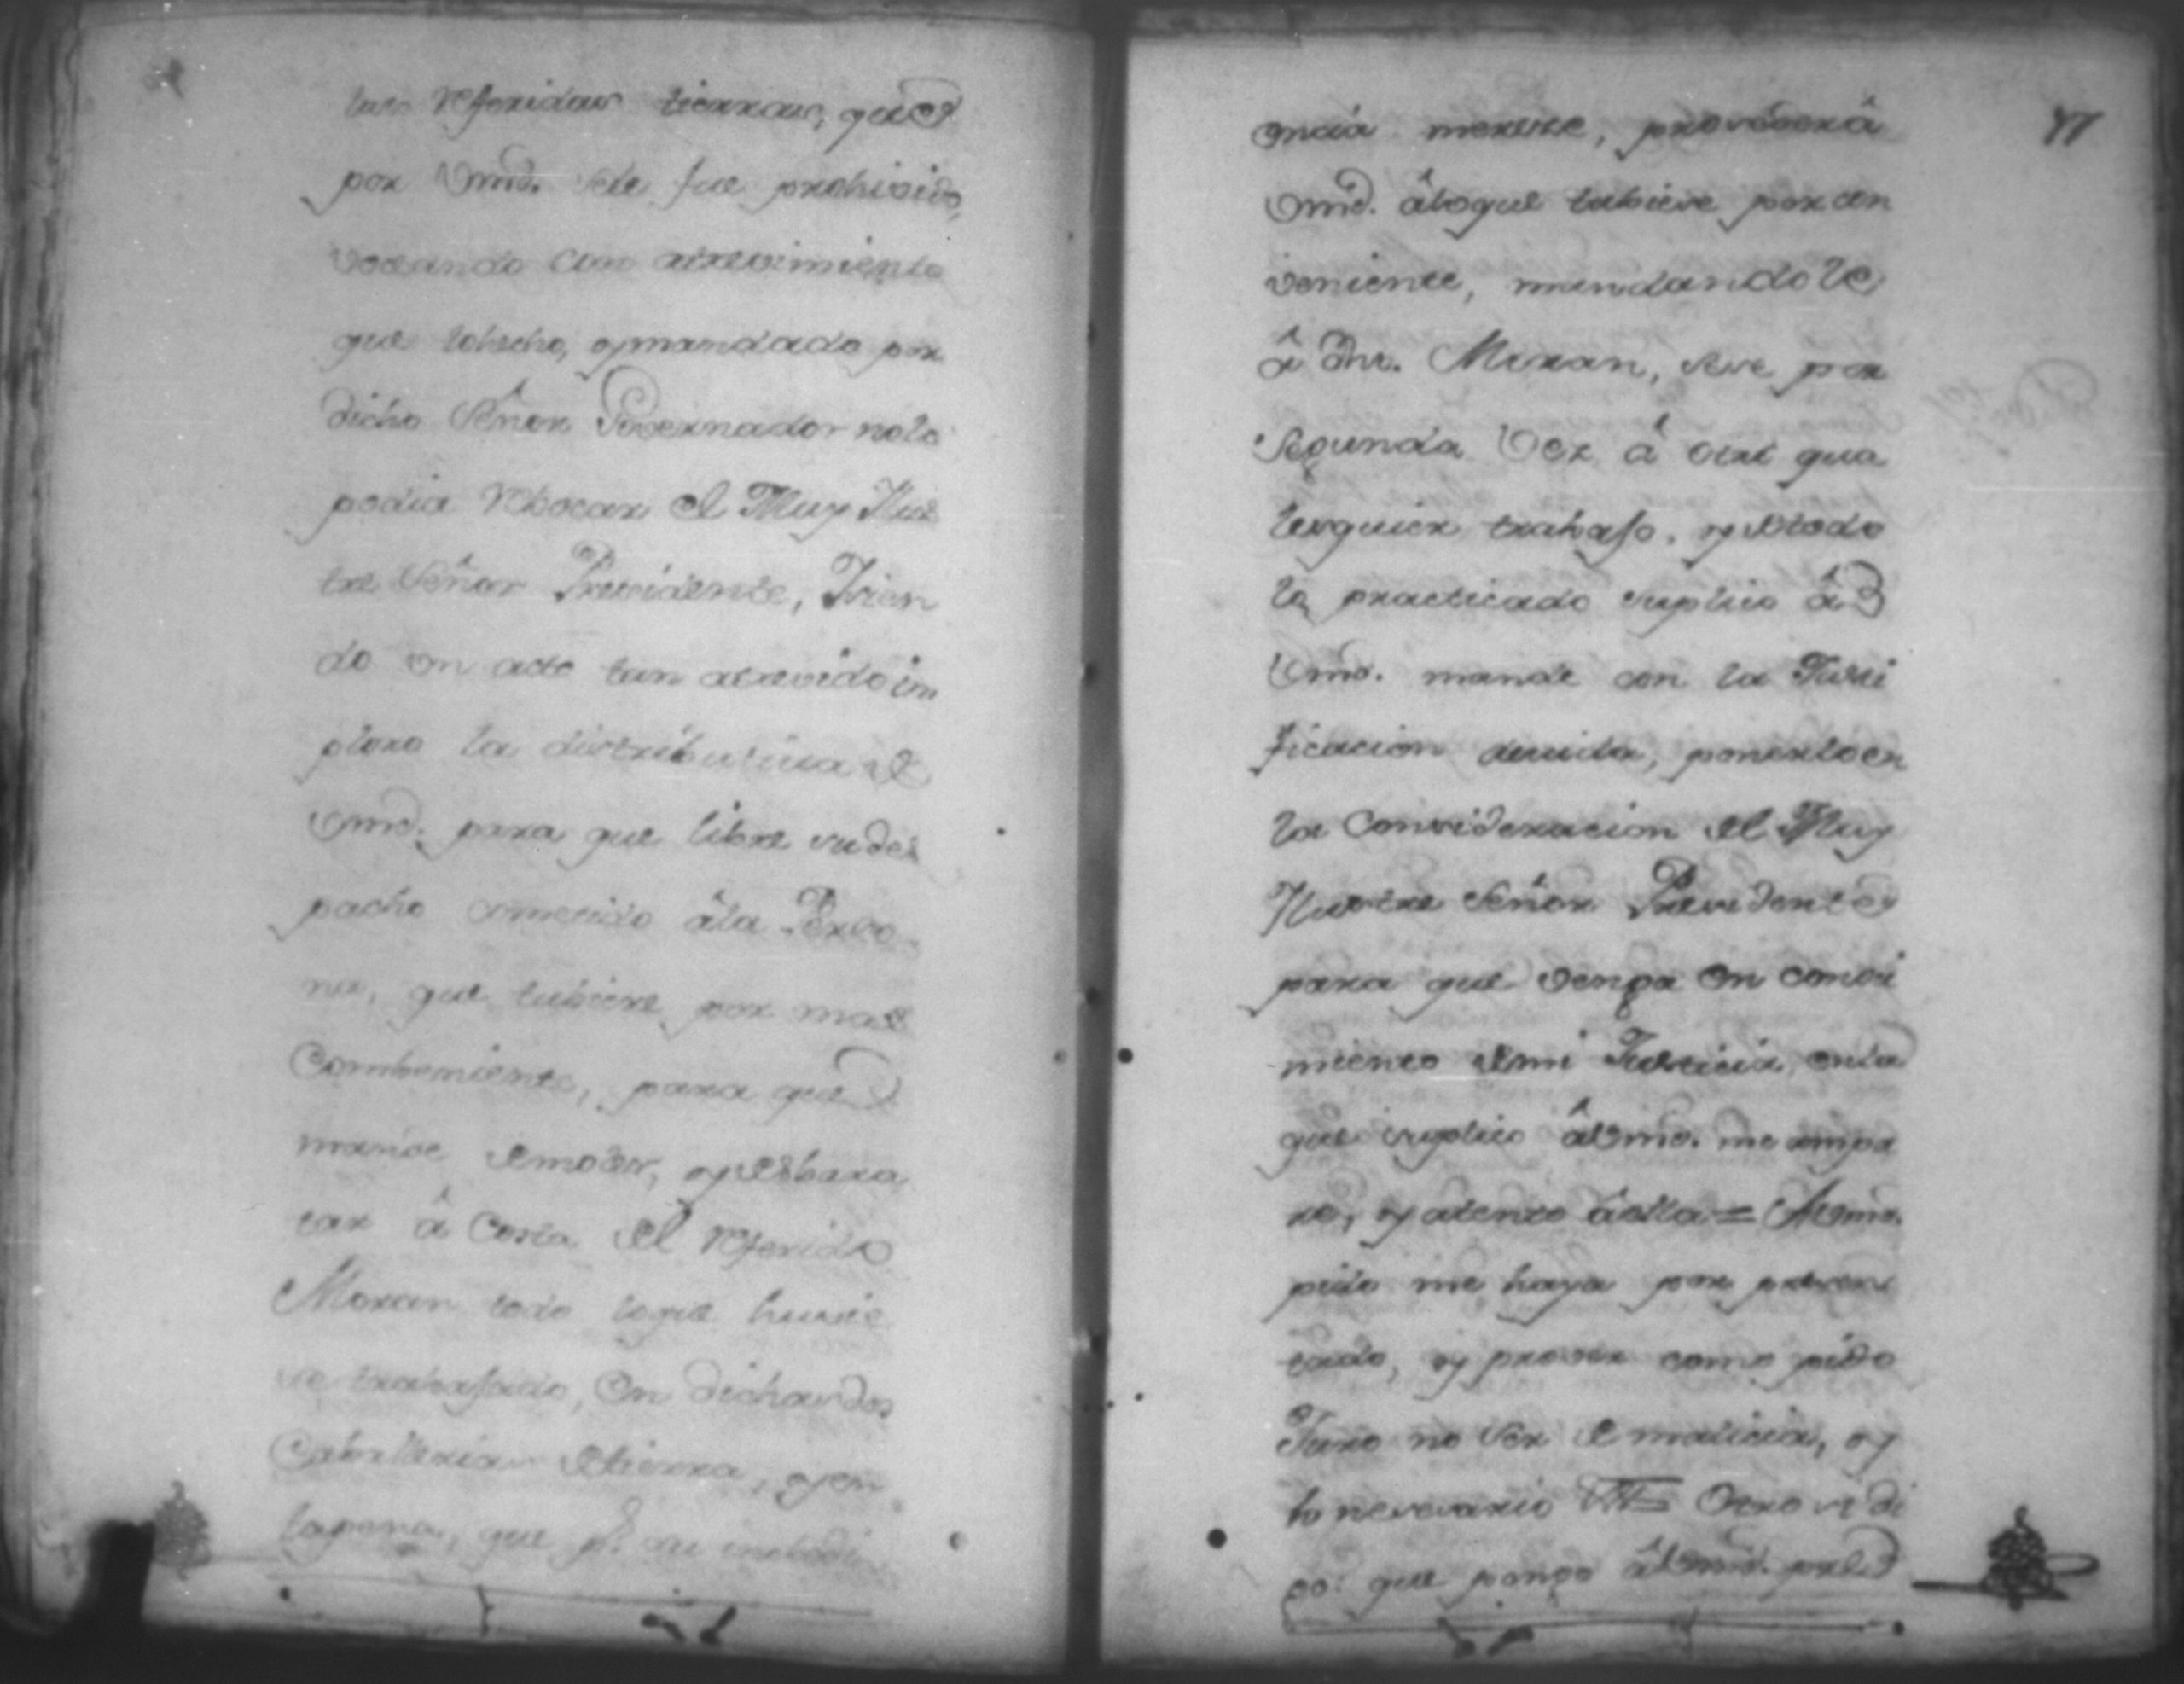 las referidas tierras, que
por Vmd. sele fue prohivido,
voceando con atrevimiento
que lohecho, y mandado por
dicho Señor Governador nolo
podia rebocar el Muy Ilus
tre Señor Precidente, Y sien
do en acto tan atrevido im
ploro la distributiva de
Vmd. para que libre su des
pacho cometido âla Perso
na, que tubiere por mas
Combeniente, para que
mande demoler, y desbara
tar â Costa del referido
Moran todo loque huvie
se travajado, en dichas dos
Caballerias detierra, y en
lapena, que pr. su inobedi
77
encia merese, proveherâ
Vmd. âloque tubiese por con
veniente, mandandole
â dho. Moran, sese por
Segunda Vez â otro qua
lesquier trabajo, y detodo
lo practicado suplico â
Vmd. mande con la Justi
ficacion devida, ponerlo en
la Concideracion del Muy
Ilustre Señor Precidente
para que venga en conosi
miento demi Justicia, enla
que suplico âVmd. me ampa
re, y atento âella = A Vmd.
pido me haya por presen
tado, y proveer como pido
Juro no ser de malicia, y
lo nesesario Vt= Otro si di
go: que pongo âVmd. por